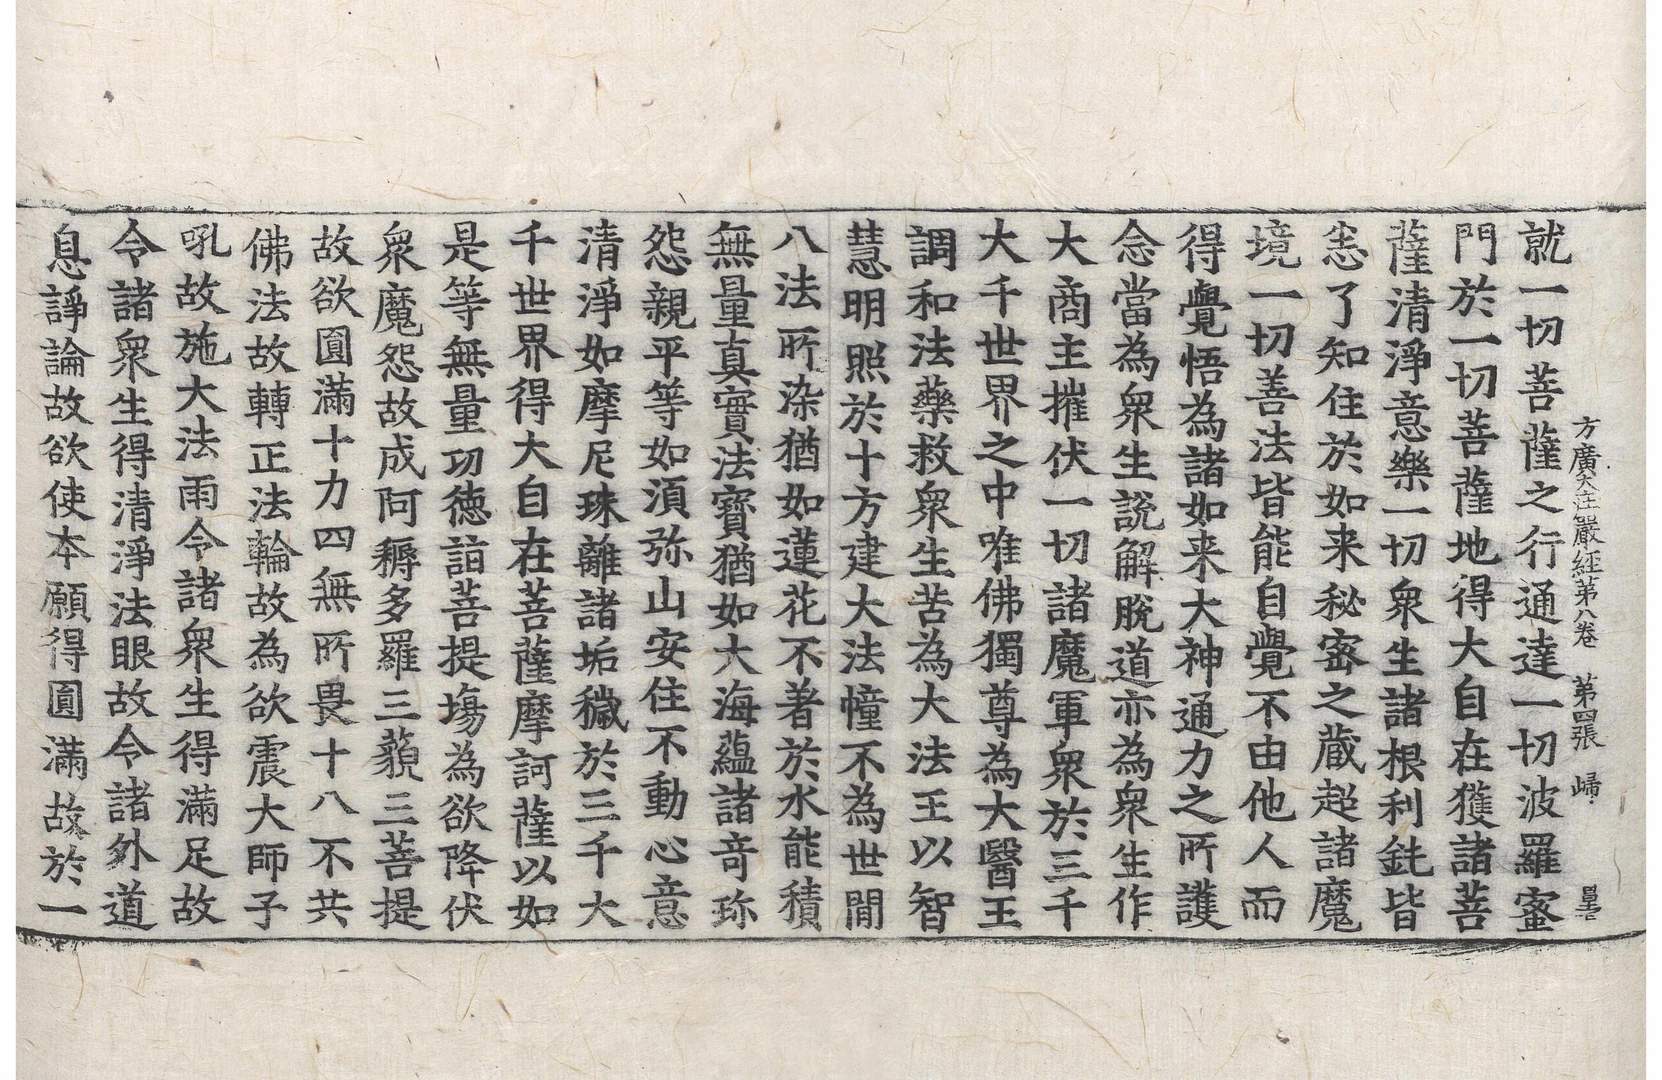 方廣大莊嚴經第八卷　第四張　歸
就一切菩薩之行通達一切波羅蜜
門於一切菩薩地得大自在獲諸菩
薩清淨意樂一切衆生諸根利鈍皆
悉了知住於如来秘密之藏超諸魔
境一切善法皆能自覺不由他人而
得覺悟為諸如来大神通力之所護
念當為衆生說解脫道亦為衆生作
大商主摧伏一切諸魔軍衆於三千
大千世界之中唯佛獨尊為大醫王
調和法藥救衆生苦為大法王以智
慧明照於十方建大法幢不為世間
八法所染猶如蓮花不著於水能積
無量真實法寶猶如大海蘊諸奇珎
怨親平等如湏弥山安住不動心意
清淨如摩尼珠離諸垢穢於三千大
千世界得大自在菩薩摩訶薩以如
是等無量功德詣菩提場為欲降伏
衆魔怨故成阿耨多羅三藐三菩提
故欲圓滿十力四無所畏十八不共
佛法故轉正法輪故為欲震大師子
吼故施大法雨令諸衆生得滿足故
令諸衆生得清淨法眼故令諸外道
息諍論故欲使本願得圓滿故於一